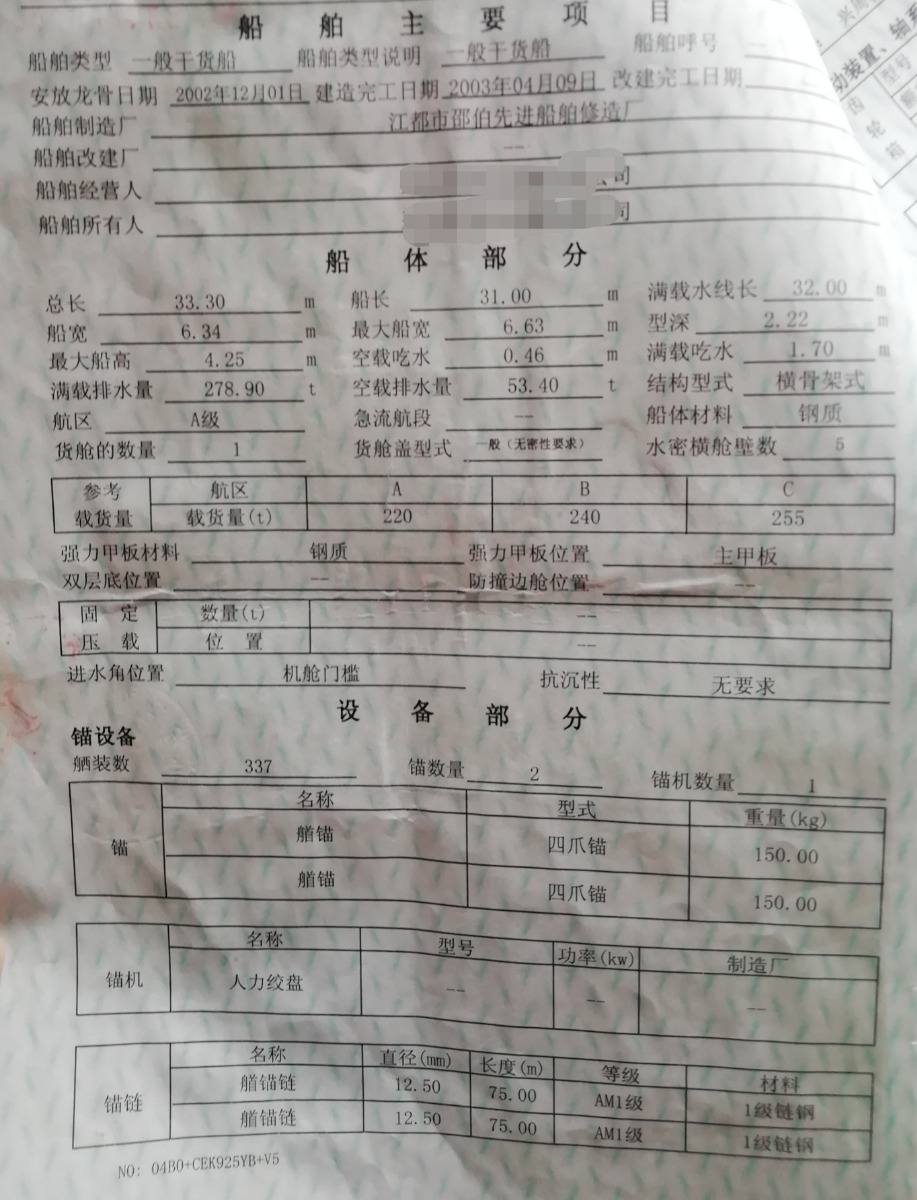 船舶主要项目
船舶类型 一般干货船 船舶类型说明 一般干货船 船舶呼号 --
安放龙骨日期 2002年12月01日 建造完工日期 2003年04月09日 改建完工日期
船舶制造厂 江都市邵伯先进船舶修造厂
船舶改建厂 --
船舶经营人 公司
船舶所有人 司
船体部分
总长 33.30 m 船长 31.00 m 满载水线长 32.00 m
船宽 6.34 m 最大船宽 6.63 m 型深 2.22 m
最大船高 4.25 m 空载吃水 0.46 m 满载吃水 1.70 m
满载排水量 278.90 t 空载排水量 53.40 t 结构型式 横骨架式
航区 A级 急流航段 -- 船体材料 钢质
货舱的数量 1 货舱盖型式 一般(无密性要求) 水密横舱壁数 5
参考 航区 A B C
载货量 载货量(t) 220 240 255
强力甲板材料 钢质 强力甲板位置 主甲板
双层底位置 -- 防撞边舱位置 --
固定 数量(t) --
压载 位置 --
进水角位置 机舱门槛 抗沉性 无要求
设备部分
锚设备
舾装数 337 锚数量 2 锚机数量 1
锚 名称 型式 重量(kg)
艏锚 四爪锚 150.00
艏锚 四爪锚 150.00
锚机 名称 型号 功率(kw) 制造厂
人力绞盘 -- -- --
锚链 名称 直径(mm) 长度(m) 等级 材料
艏锚链 12.50 75.00 AM1级 1级链钢
艏锚链 12.50 75.00 AM1级 1级链钢
NO: 04B0+CEK925YB+V5
动装置、轴系
型号
齿轮箱